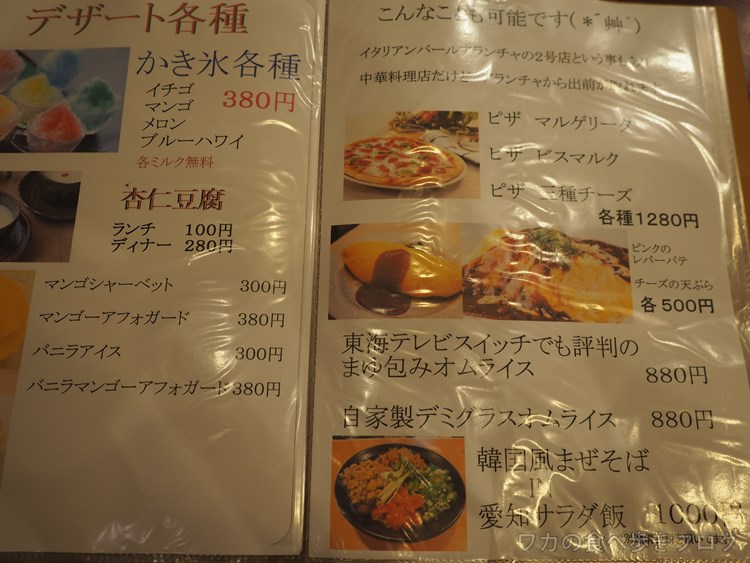 デザート各種
かき氷各種
イチゴ
マンゴ
メロン
ブルーハワイ
380円
各ミルク無料
杏仁豆腐
ランチ 100円
ディナー 280円
マンゴシャーベット 300円
マンゴーアフォガード 380円
バニラアイス 300円
バニラマンゴーアフォガード 380円
こんなことも可能です(*´艸`)
イタリアンバールアランチャの2号店という事も
中華料理店だけど アランチャから出前が
ピザ マルゲリータ
ピザ ビスマルク
ピザ 三種チーズ
各種1280円
ピンクの
レバーパテ
チーズの天ぷら
各500円
東海テレビスイッチでも評判の
まゆ包みオムライス 880円
自家製デミグラスオムライス 880円
韓国風まぜそば
IN
愛知サラダ飯 1000円
ワカの食べ歩きブログ